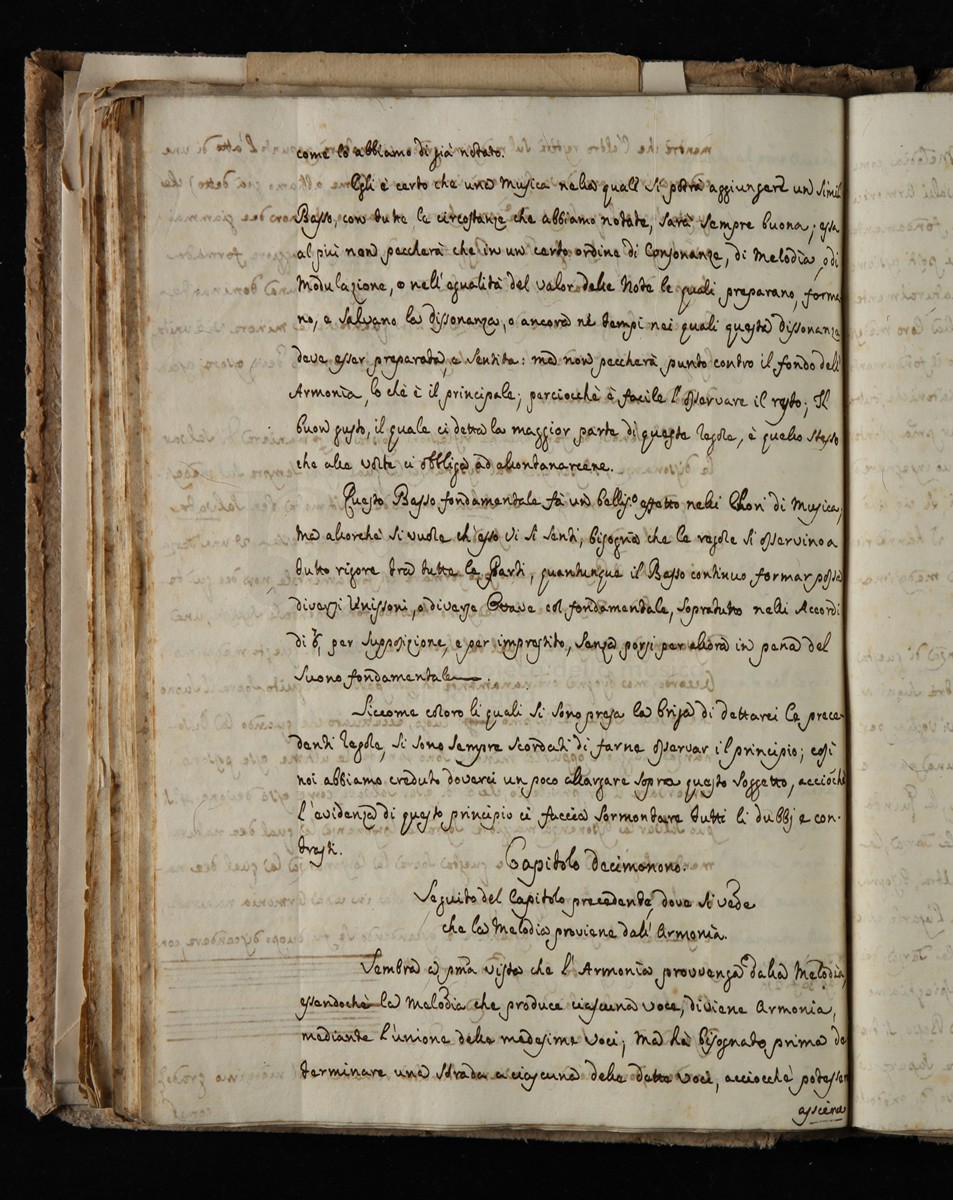 come lo abbiamo di già notato.
Egli è certo che una Musica nella quall si potrà aggiungere un simil
Basso, con tutte le circostanze che abbiamo notate, sarà sempre buona; essa
al più non peccherà che in un certo ordine di Consonanze, di Melodia, o di
Modulazione, o nell'egualità del valor delle Note le quali preparano, forma
no, e salvano la dissonanza, o ancora nè tempi nei quali questa dissonanza
deve esser preparata, e sentita: ma non peccherà punto contro il fondo dell'
Armonia, lo chè è il principale; perciocchè è facile l'osservare il resto; Il
buon gusto, il quale ci detta la maggior parte di queste regole, è quello stesso
che alle volte ci obbliga ad allontanarcene.
Questo Basso fondamentale fà un bellis.º effetto nelli Chori di Musica;
Ma allorchè si vuole ch'esso vi si senti, bisogna che le regole si osservino a
tutto rigore trà tutte le Parti, quantunque il Basso continuo formar possa
diversi Unissoni, o diverse Ottave col fondamentale, sopratutto nelli Accordi
di per supposizione, e per imprestito, senza porsi per allora in pena del
Suono fondamentale.
Siccome coloro li quali si sono presa la briga di dettarci le prece
denti regole, si sono sempre scordati di farne osservar il principio; così
noi abbiamo creduto doverci un poco allargare sopra questo soggetto, acciochè
l'evidenza di questo principio ci faccia sormontare tutti li dubbj e con-
trasti.
Capitolo decimonono.
Seguito del Capitolo precedente, dove si vede
che la Melodia proviene dall'Armonia.
Sembra à pma vista che l'Armonia provvenga dalla Melodia,
essendochè la Melodia che produce ciascuna voce, diviene Armonia,
mediante l'unione delle medesime Voci; Ma hà bisognato prima de
terminare una strada a ciascuna delle dette Voci, acciocchè potesser